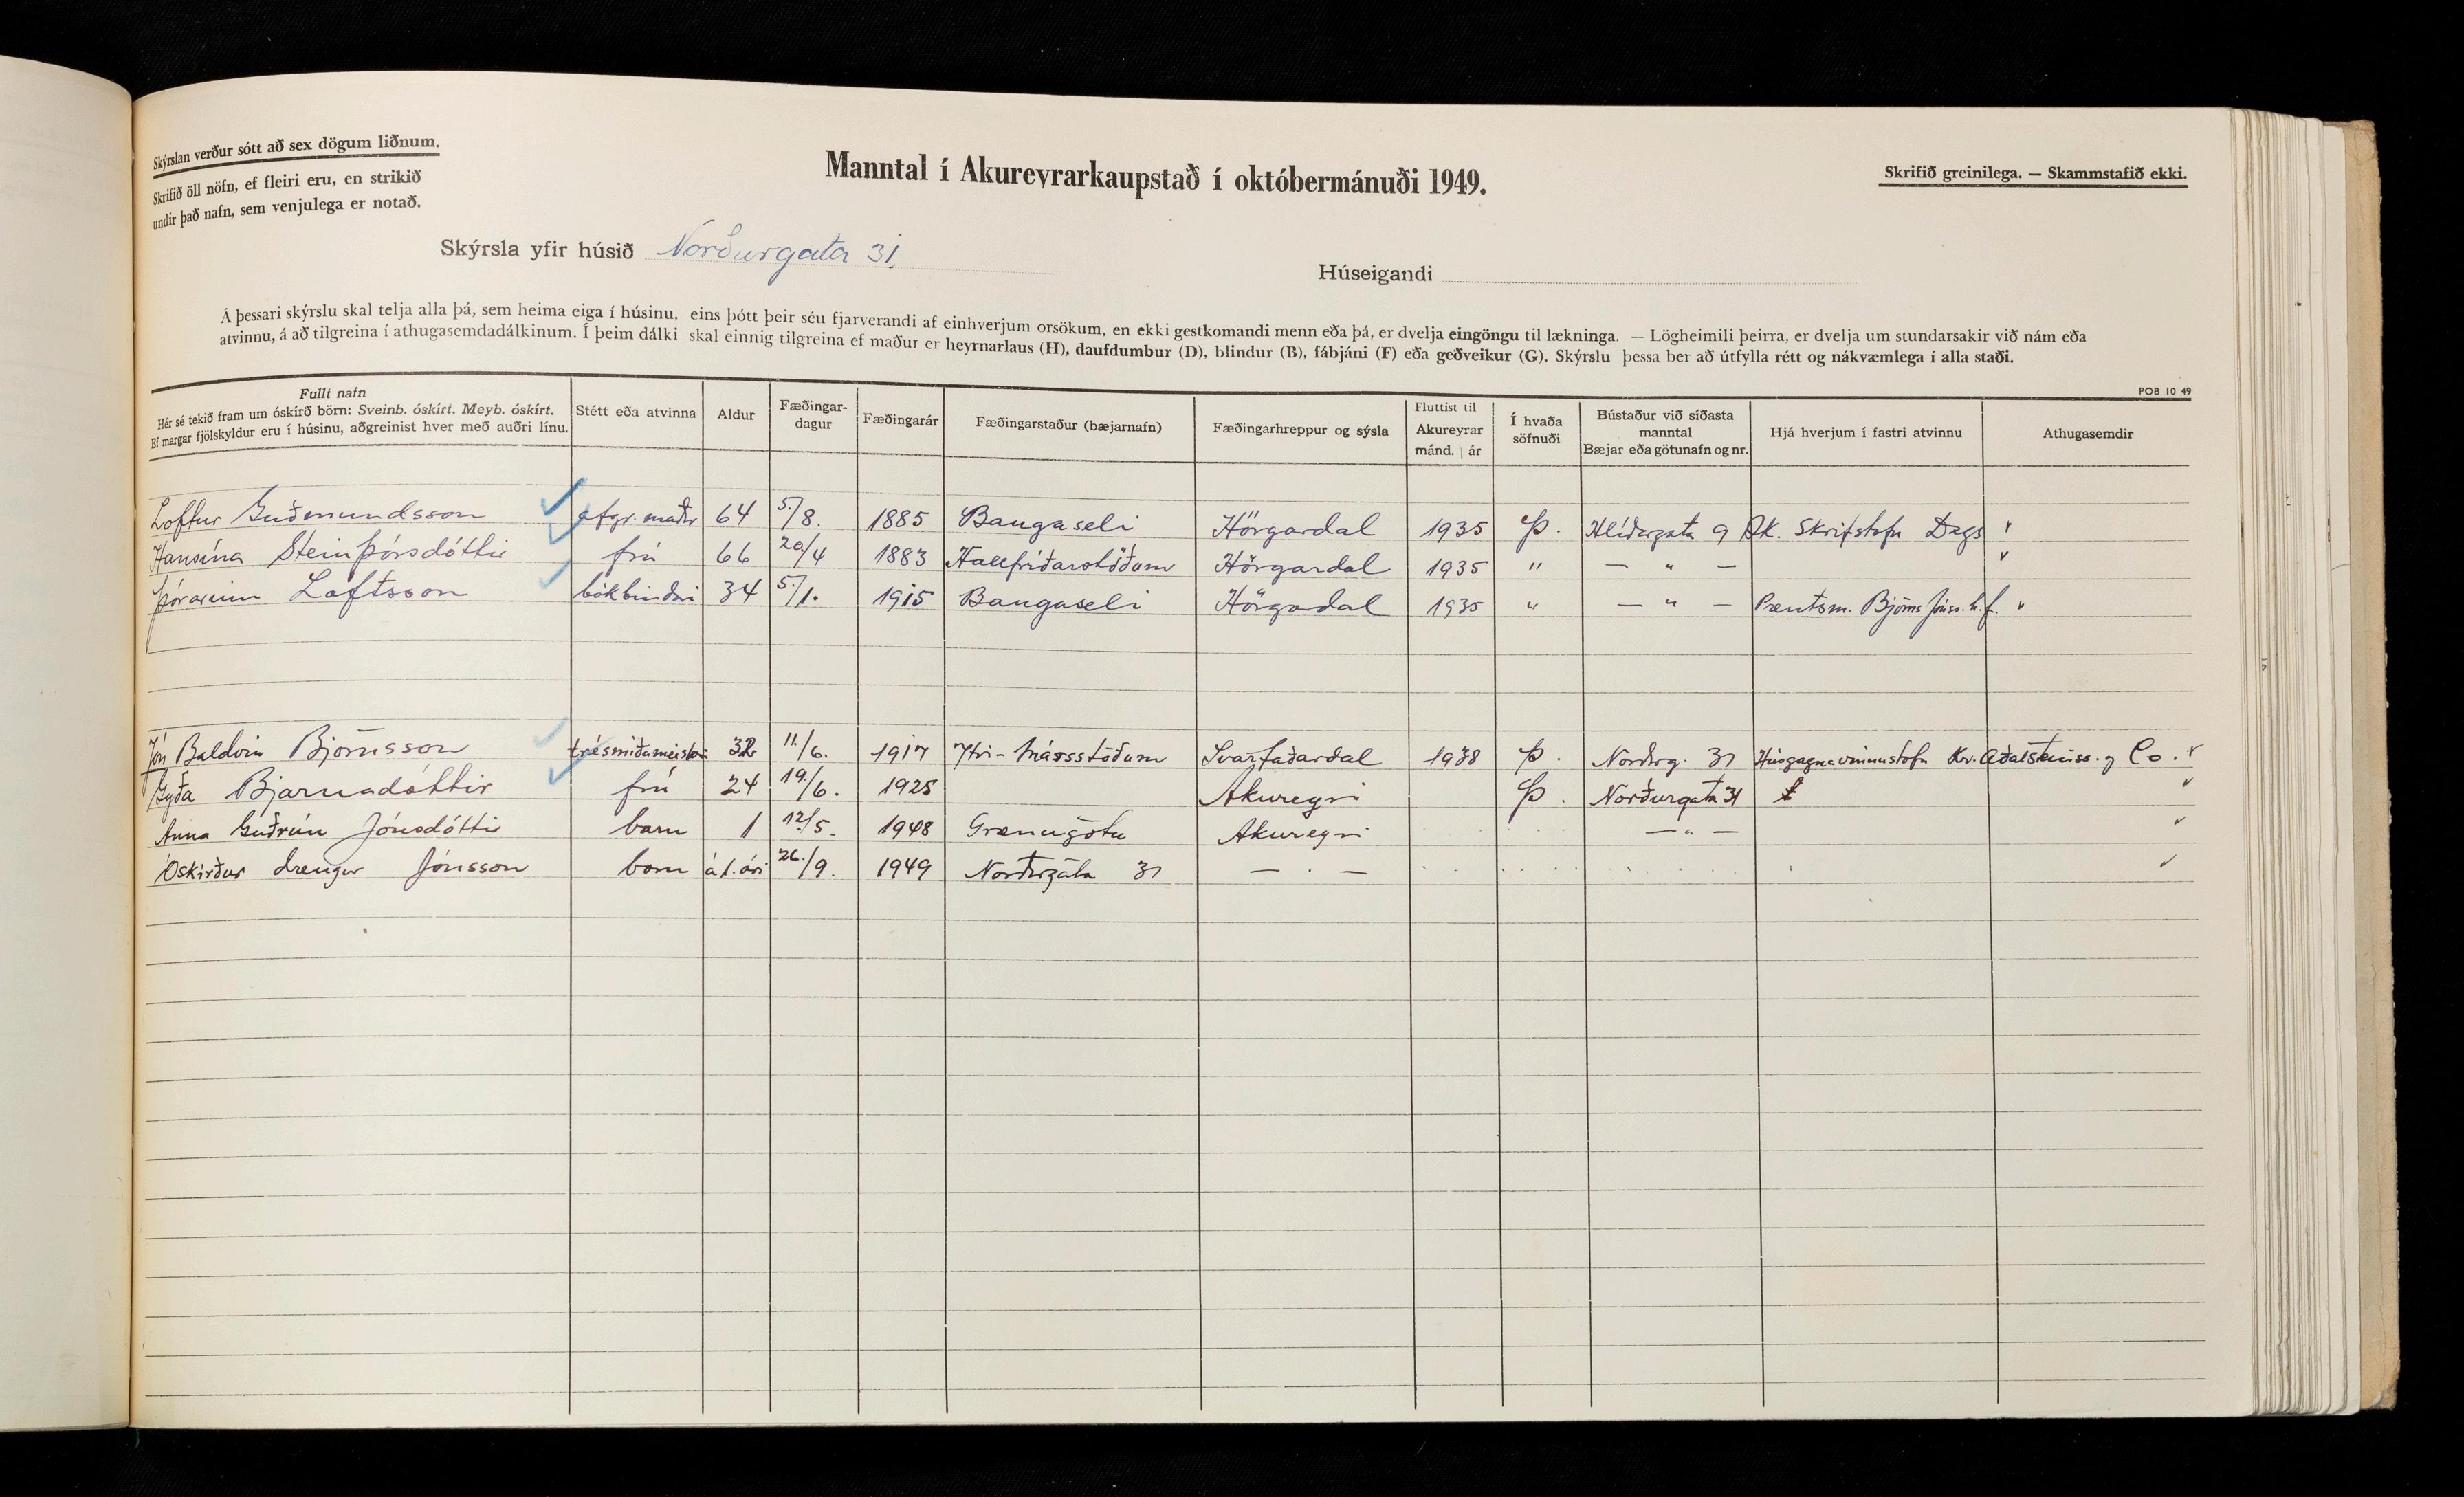 Skýrslan verður sótt að sex dögum liðnum.
Skrifið öll nöfn, ef fleiri eru, en strikið
undir það nafn, sem venjulega er notað.
Manntal í Akureyrarkaupstað í októbermánuði 1949.
Skrifið greinilega. — Skammstafið ekki.
Skýrsla yfir húsið Norðurgata 31.
Húseigandi
Á þessari skýrslu skal telja alla þá, sem heima eiga í húsinu, eins þótt þeir séu fjarverandi af einhverjum orsökum, en ekki gestkomandi menn eða þá, er dvelja eingöngu til lækninga. — Lögheimili þeirra, er dvelja um stundarsakir við nám eða
atvinnu, á að tilgreina í athugasemdadálkinum. Í þeim dálki skal einnig tilgreina ef maður er heyrnarlaus (H), daufdumbur (D), blindur (B), fábjáni (F) eða geðveikur (G). Skýrslu þessa ber að útfylla rétt og nákvæmlega í alla staði.
POB 10 49
Fullt nafn
Hér sé tekið fram um óskírð börn: Sveinb. óskírt. Meyb. óskírt.
Ef margar fjölskyldur eru í húsinu, aðgreinist hver með auðri línu.
Stétt eða atvinna
Aldur
Fæðingar-
dagur
Fæðingarár
Fæðingarstaður (bæjarnafn)
Fæðingarhreppur og sýsla
Fluttist til
Akureyrar
mánd. | ár
Í hvaða
söfnuði
Bústaður við síðasta
manntal
Bæjar eða götunafn og nr.
Hjá hverjum í fastri atvinnu
Athugasemdir
Loftur Guðmundsson afgr.maðr 64 5./8. 1885 Baugaseli Hörgardal 1935 Þ. Hlíðargata 9 Ak. Skrifstofu Dags "
Hansína Steinþórsdóttir frú 66 20/4 1883 Hallfríðarstöðum Hörgardal 1935 " — " — "
Þórarinn Loftsson bókbindari 34 5./1. 1915 Baugaseli Hörgardal 1935 " — " — Prentsm. Björns Jónss. h.f. "
Jón Baldvin Björnsson trésmíðameistari 32 11./6. 1917 Ytri-Másstöðum Svarfaðardal 1938 Þ. Norðrg. 31 Húsgagnavinnustofu Kr. Aðalsteinss. og Co. "
Gyða Bjarnadóttir frú 24 19./6. 1925 Akureyri Þ. Norðurgata 31 "
Anna Guðrún Jónsdóttir barn 1 12./5. 1948 Grænugötu Akureyri — " — "
Óskírður drengur Jónsson barn á 1. ári 26./9. 1949 Norðurgata 31 — " — "